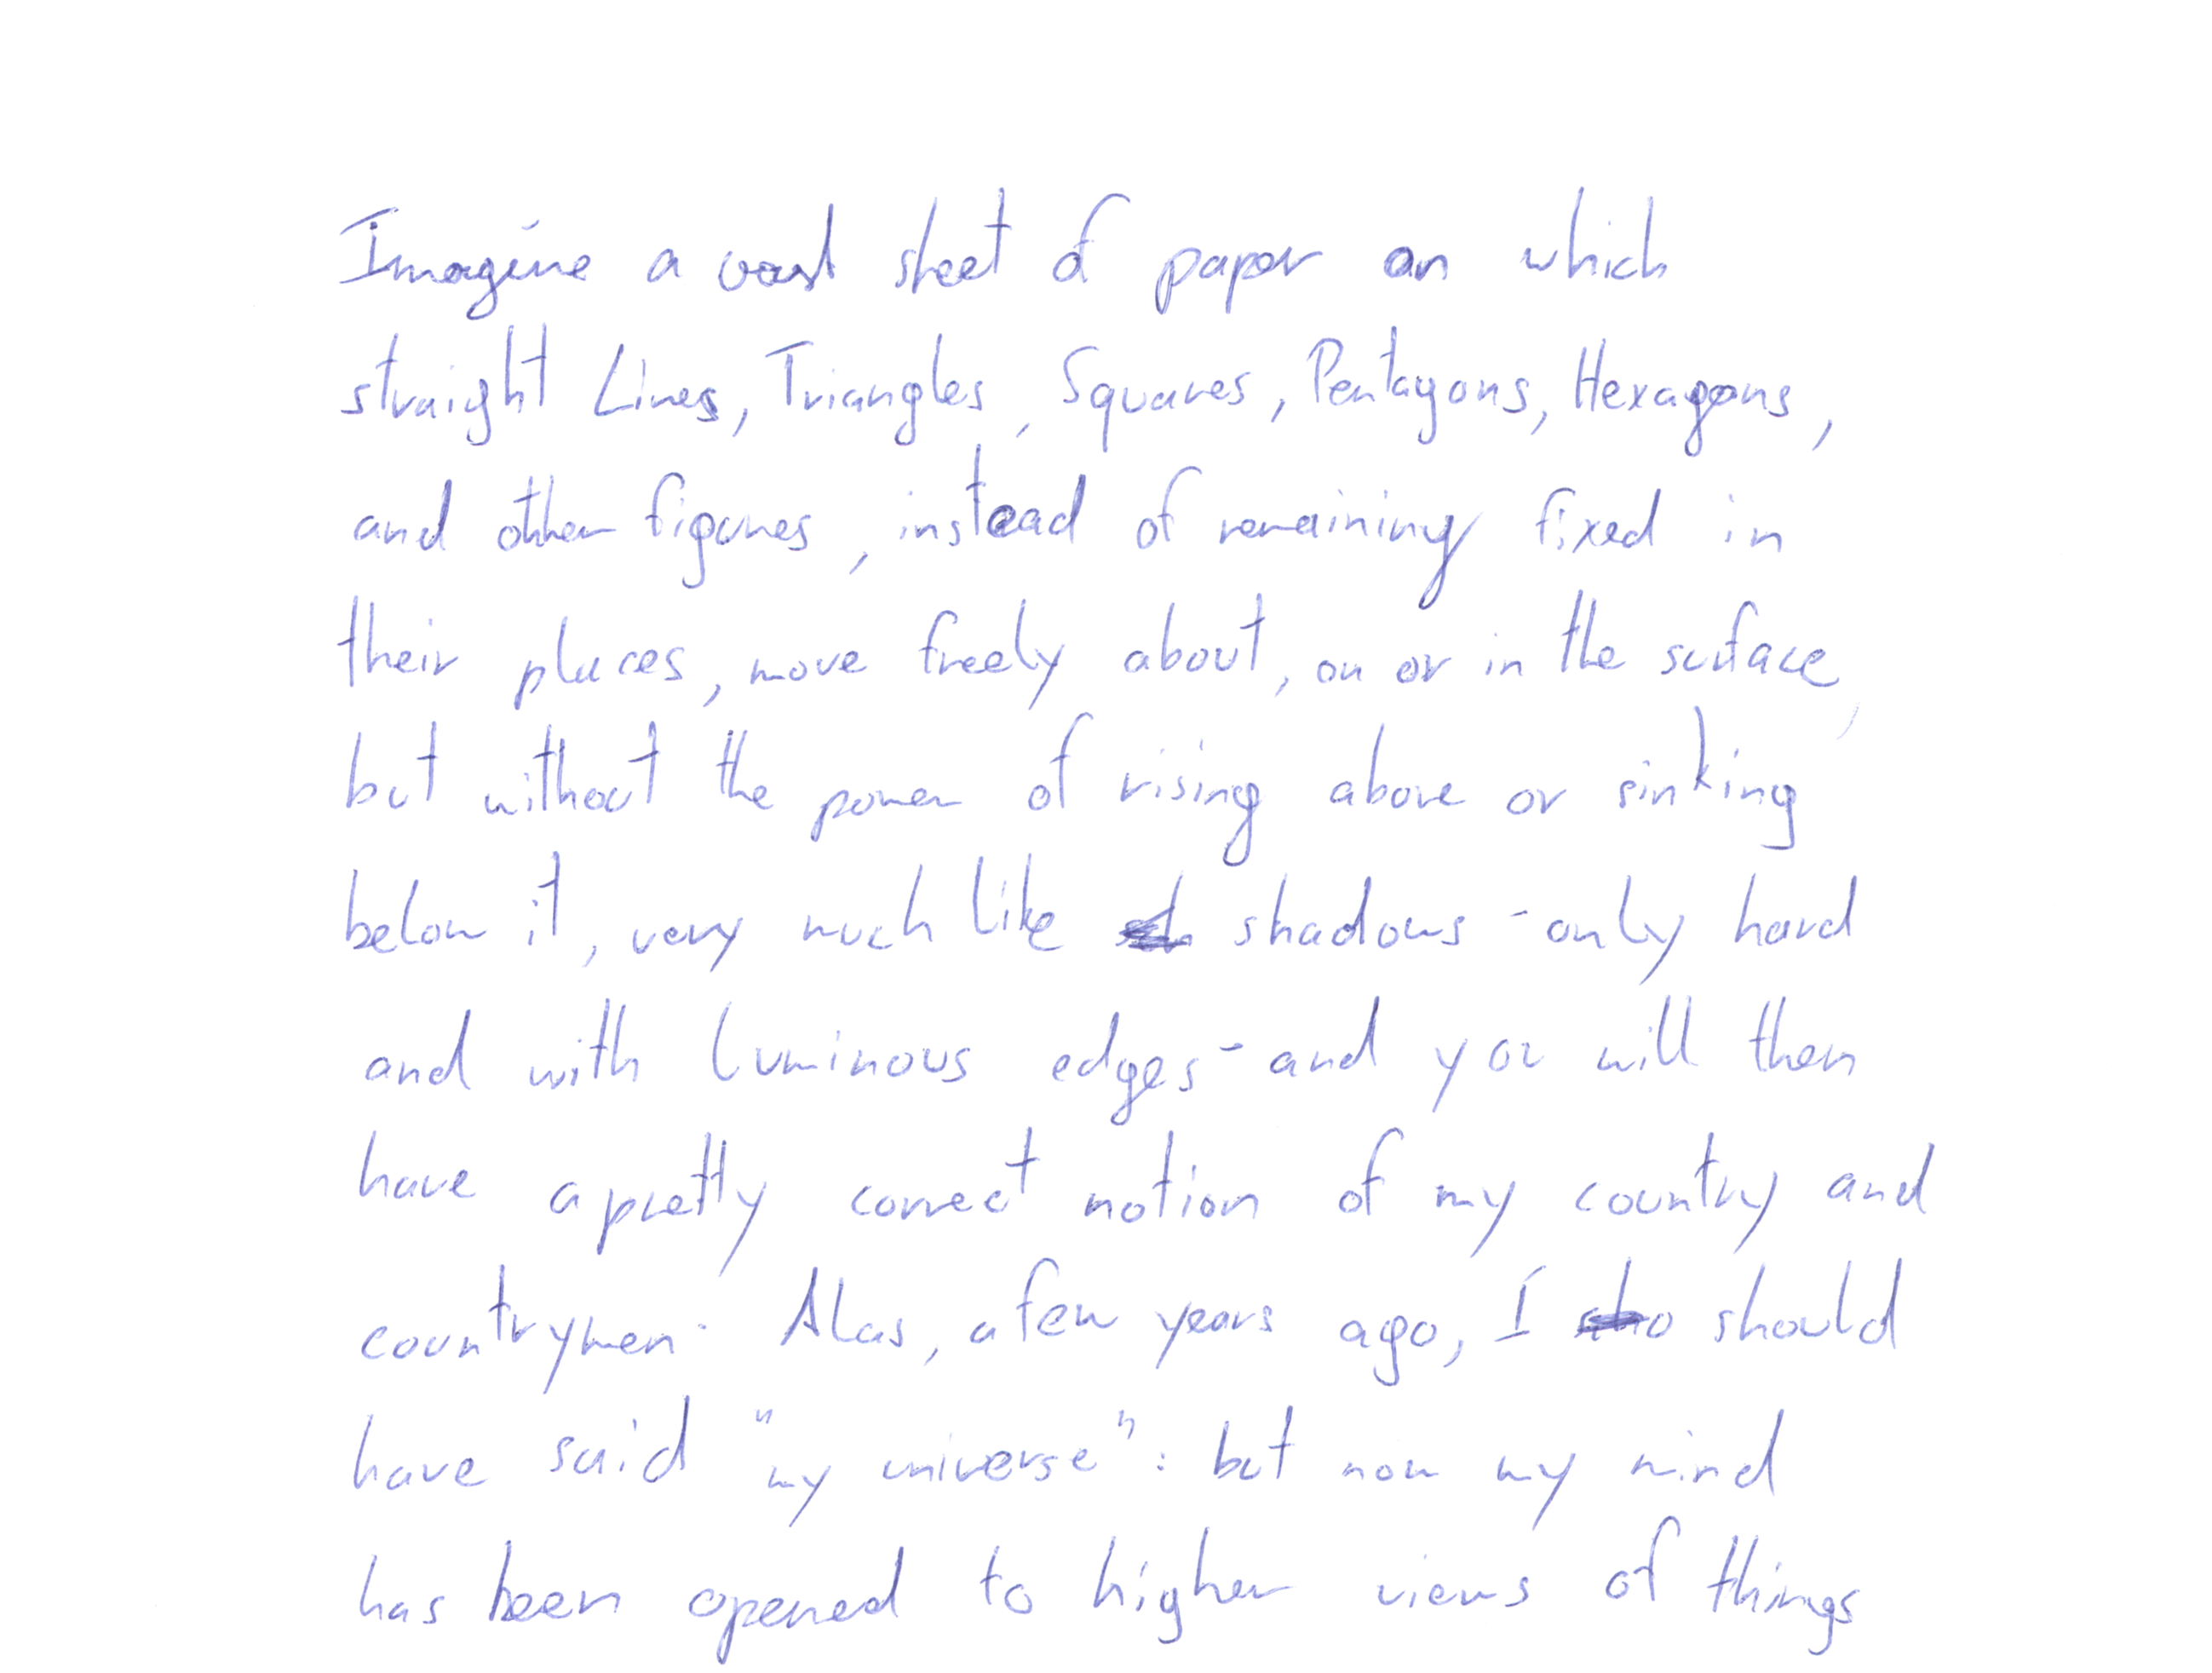 Imagine a vast sheet of paper on which
straight Lines, Triangles, Squares, Pentagons, Hexagons,
and other figures, instead of remaining fixed in
their places, move freely about, on or in the surface,
but without the power of rising above or sinking
below it, very much like shadows - only hard
and with luminous edges - and you will then
have a pretty correct notion of my country and
countrymen. Alas, a few years ago, I should
have said "my universe": but now my mind
has been opened to higher views of things